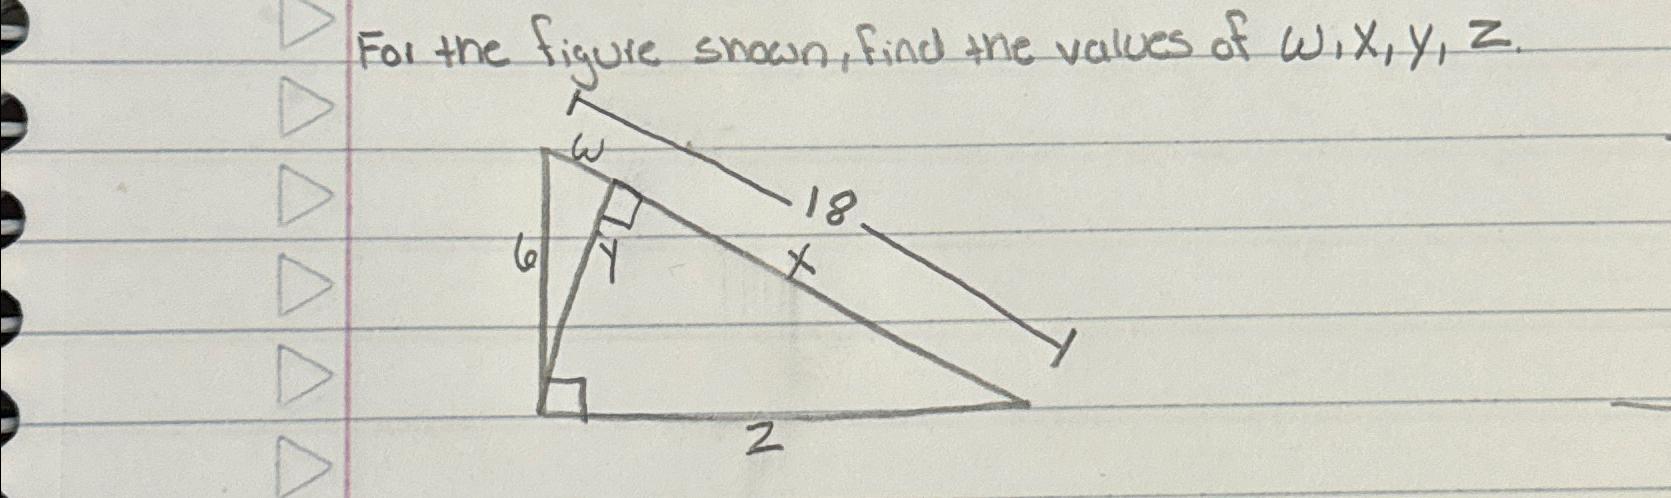 For the figure shown, find the values of w, x, y, z.
w
18
6
y
x
z